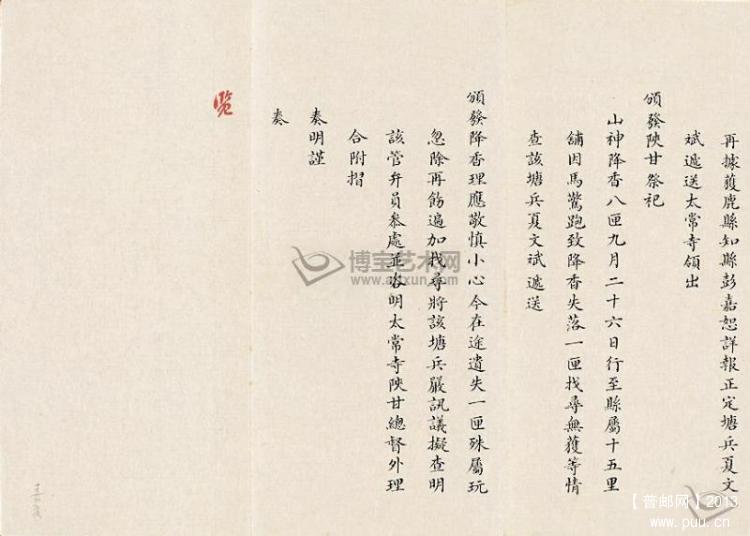 再據獲鹿縣知縣彭嘉恕詳報正定塘兵夏文
斌遞送太常寺領出
頒發陜甘祭祀
山神降香八匣九月二十六日行至縣屬十五里
舖因馬驚跑致降香失落一匣找尋無獲等情
查該塘兵夏文斌遞送
頒發降香理應敬慎小心今在途遺失一匣殊屬玩
忽除再飭遍加找尋將該塘兵嚴訊議擬查明
該管弁員叅處並咨明太常寺陜甘總督外理
合附摺
奏明謹
奏
覽
博宝艺术网
artxun.com
【普邮网】2013
www.puu.cn